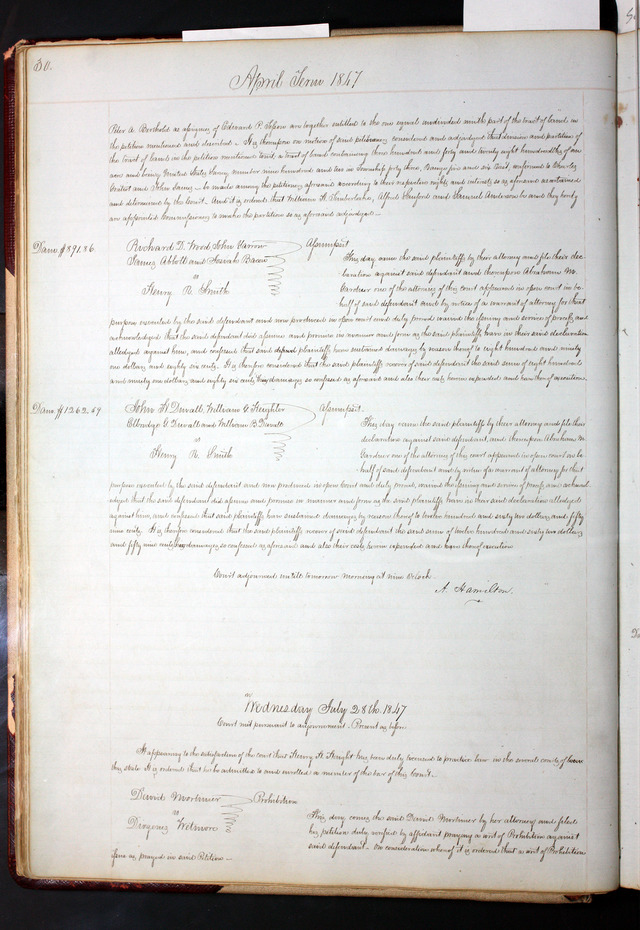 30.
April Term 1847
Peter A. Berthold as assignee of Edward P. are together entitled to the one equal undivided ninth part of the tract of land in
the petition mentioned and described – It is thereupon on motion of said petitioners considered and adjudged that division and partition of
the tract of land in the petition mentioned to wit, a tract of land containing three hundred and forty and twenty eight hundredths of an
acre and being United States Survey number nine hundred and two in Township forty three, Range five and six East, confirmed to Charles
Gratiot and John Survey – be made among the petitioners aforesaid according to their respective rights and interests so as aforesaid ascertained
and determined by the Court. And it is ordered that William H. Pemberlake, Alfred Sanford and Samuel Anderson be and they hereby
are appointed Commissioners to make the partition so as aforesaid adjudged –
Dam. $891.86.
Richard D. Wood John Yarrow
James Abbott and Josiah Bacon
vs
Henry N. Smith
Assumpsit
This day came the said plaintiffs by their attorney and file their dec-
laration against said defendant and thereupon Abraham M.
Gardner one of the attorneys of this court appeared in open court on be-
half of said defendant and by virtue of a warrant of attorney for that
purpose executed by the said defendant and now produced in open court and duly proved waived the issuing and service of process, and
acknowledged that the said defendant did assume and promise in manner and form as the said plaintiffs have in their said declaration
alledged against him, and confessed that said plaintiffs have sustained damages by reason thereof to eight hundred and ninety
one dollars and eighty six cents. It is therefore considered that the said plaintiffs recover of said defendant the said sum of eight hundred
and ninety one dollars and eighty six cents their damages so confessed as aforesaid and also their costs herein expended and have thereof execution.
Dam. $1262.59
John H. Duvall, William G. Keighler
Elbridge G. Duvall and William B. Duvall
vs
Henry N. Smith
Assumpsit.
This day came the said plaintiffs by their attorney and file their
declaration against said defendant, and thereupon Abraham M.
Gardner one of the attorneys of this court appeared in open court on be-
half of said defendant and by virtue of a warrant of attorney for that
purpose executed by the said defendant and now produced in open court and duly proved, waived the issuing and service of process and acknowl-
edged that the said defendant did assume and promise in manner and form as the said plaintiffs have in their said declaration alledged
against him, and confessed that said plaintiffs have sustained damages by reason thereof to twelve hundred and sixty two dollars and fifty
nine cents. It is therefore considered that the said plaintiffs recover of said defendant the said sum of twelve hundred and sixty two dollars
and fifty nine cents their damages so confessed as aforesaid and also their costs herein expended and have thereof execution
Court adjourned until tomorrow morning at nine o'clock
A. Hamilton.
Wednesday July 28th. 1847
Court met pursuant to adjournment – Present as before.
It appearing to the satisfaction of the court that Henry H. Haight has been duly licensed to practice law in the several courts of
this state It is ordered that he be admitted to and enrolled a member of the bar of this Court.
David Mortimer
vs
Diogenes Wetmore
Prohibition
This day comes the said David Mortimer by her attorney and filed
his petition duly verified by affidavit praying a writ of Prohibition against
said defendant – On consideration whereof it is ordered that a writ of Prohibition
issue as prayed in said Petition –